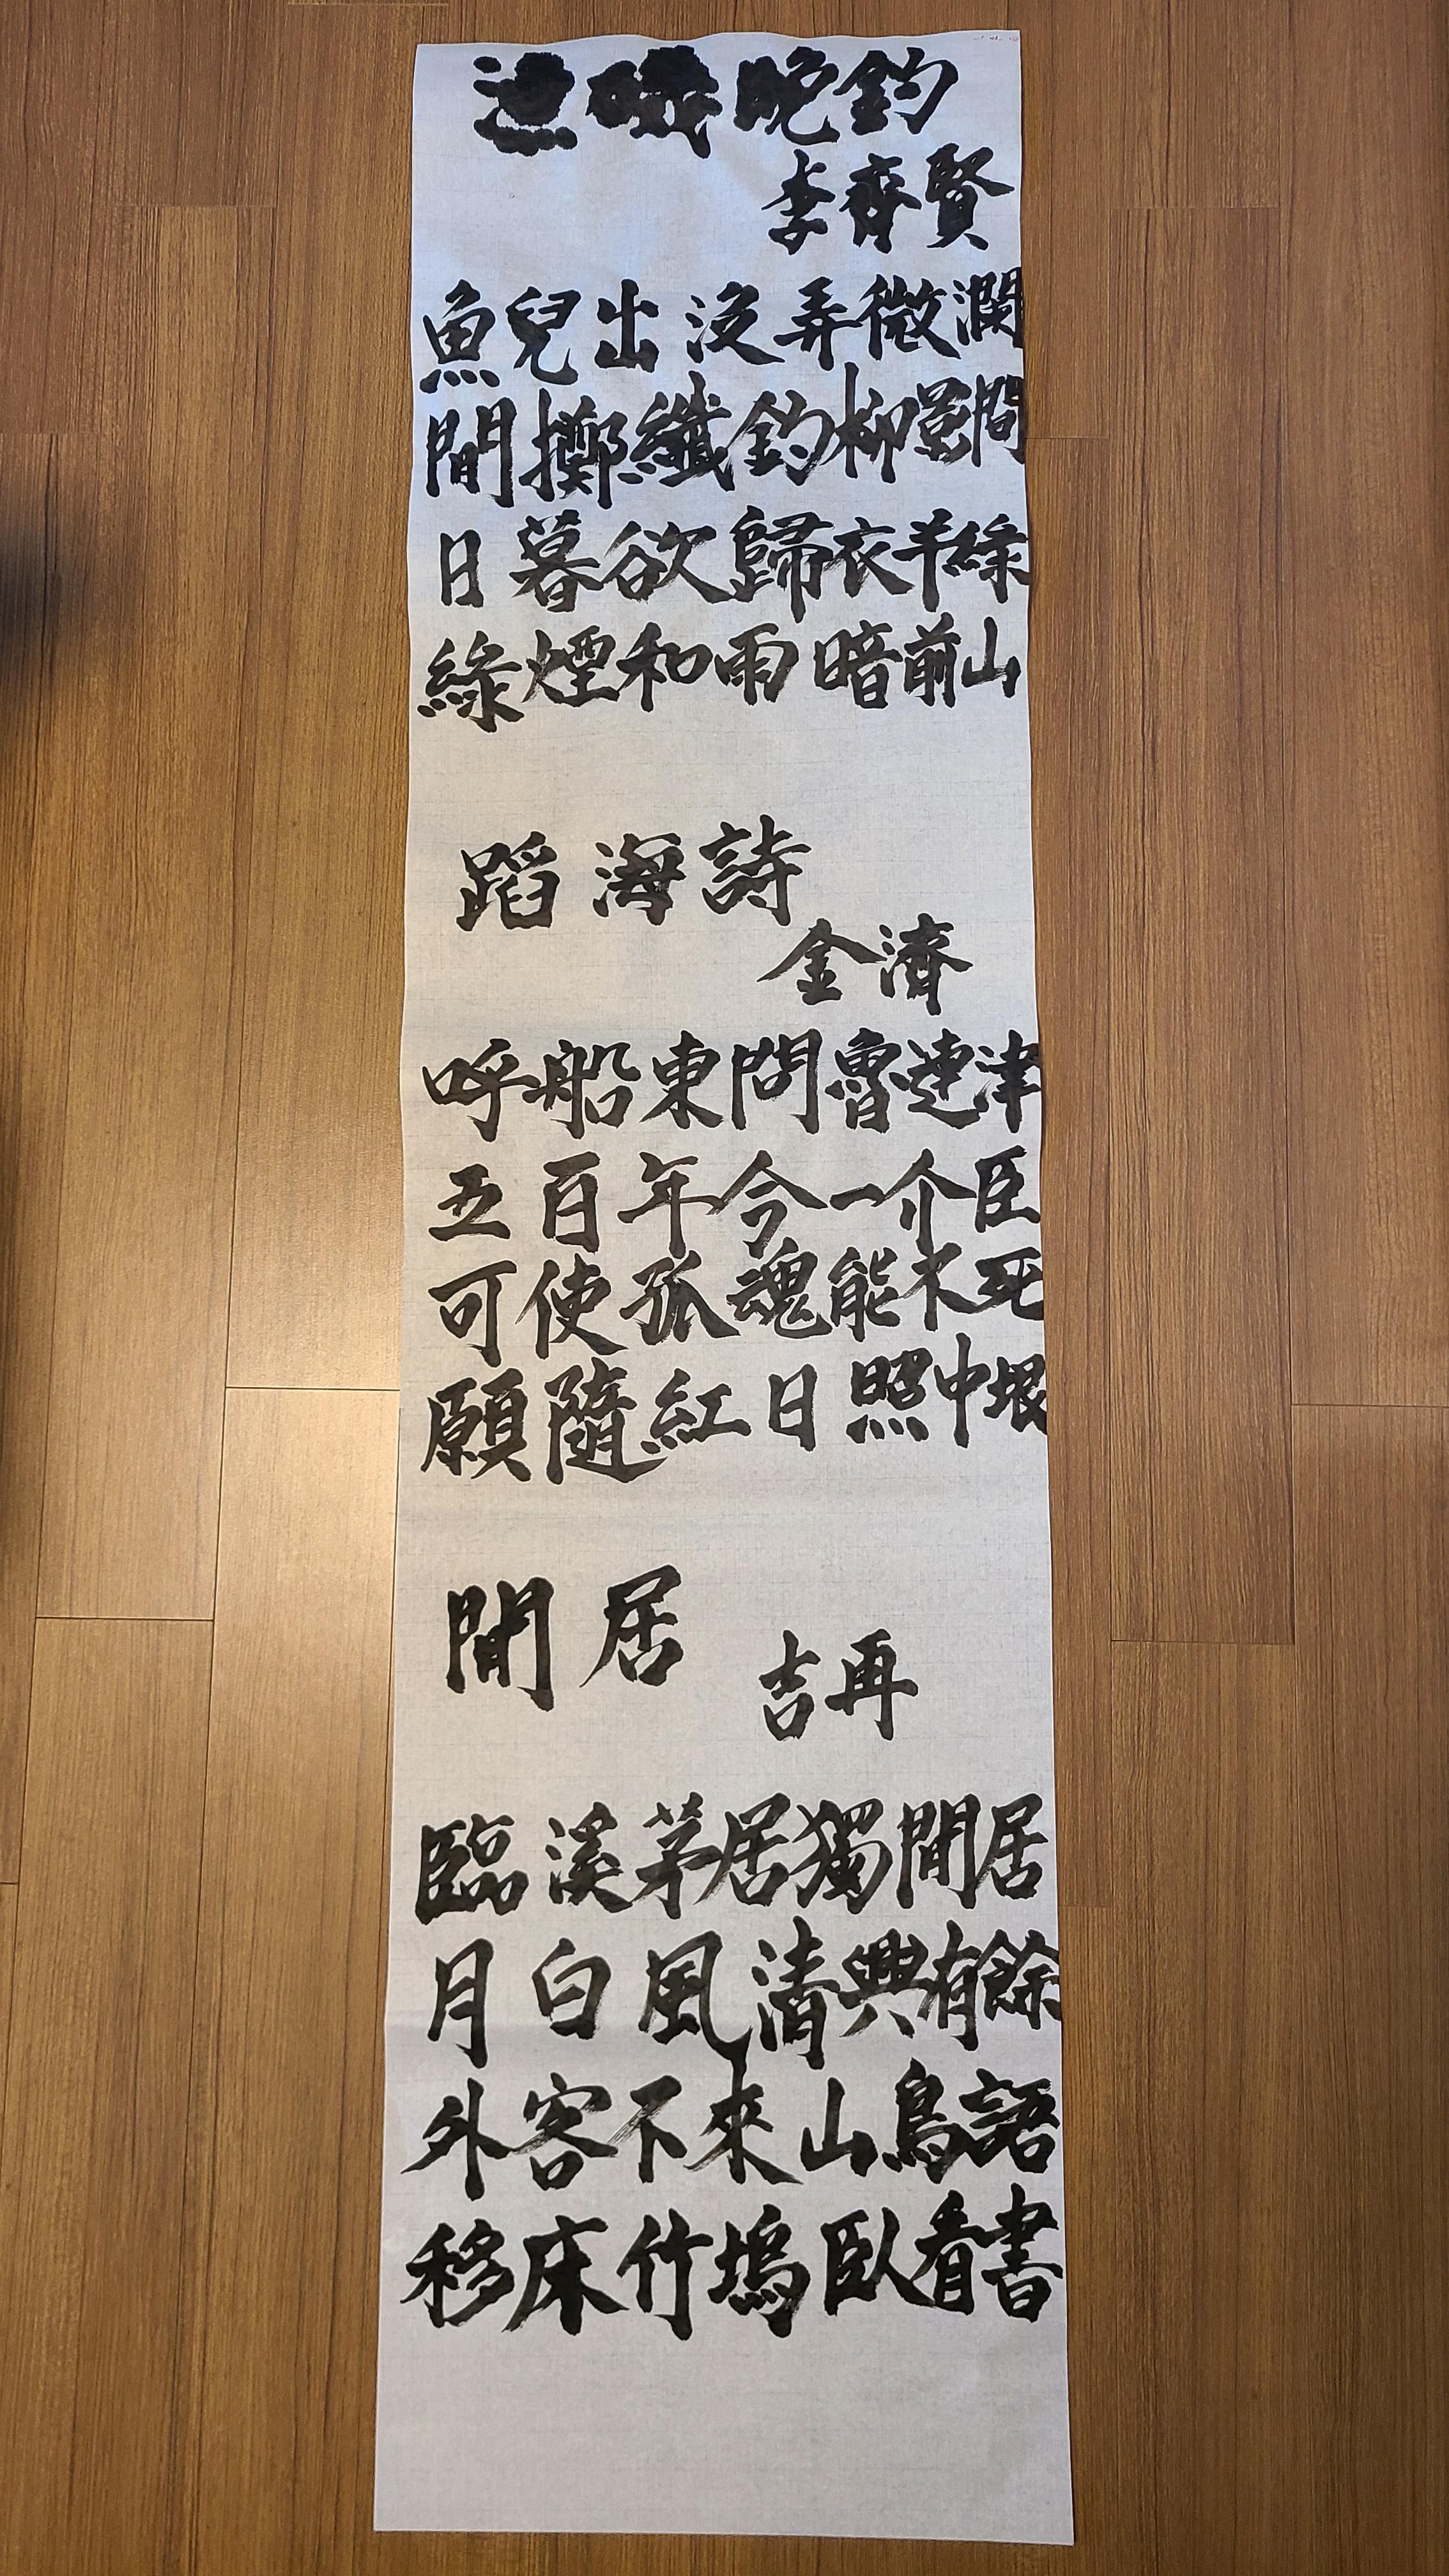 漁磯晩釣
李齊賢
魚兒出没弄微瀾
間擲纖鈎柳影間
日暮欲歸衣半綠
綠煙和雨暗前山
蹈海詩
金濟
呼船東問魯連津
五百年今一介臣
可使孤魂能不死
願隨紅日照中垠
閒居
吉再
臨溪茅居獨閒居
月白風清興有餘
外客不來山鳥語
移床竹塢臥看書